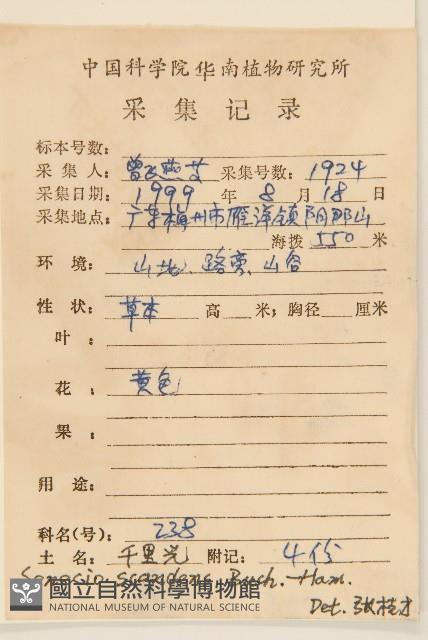 中国科学院华南植物研究所
采集记录
标本号数:
采集人: 曾 采集号数: 1924
采集日期: 1999 年 8 月 18 日
采集地点: 广东梅州市雁洋镇阴那山
海拨 550 米
环境: 山地、路旁、山谷
性状: 草本 高 米; 胸径 厘米
叶:
花: 黄色
果:
用途:
科名(号): 238
土名: 千里光 附记: 4份
Senecio scandens Buch.-Ham.
Det. 张桂才
國立自然科學博物館
NATIONAL MUSEUM OF NATURAL SCIENCE